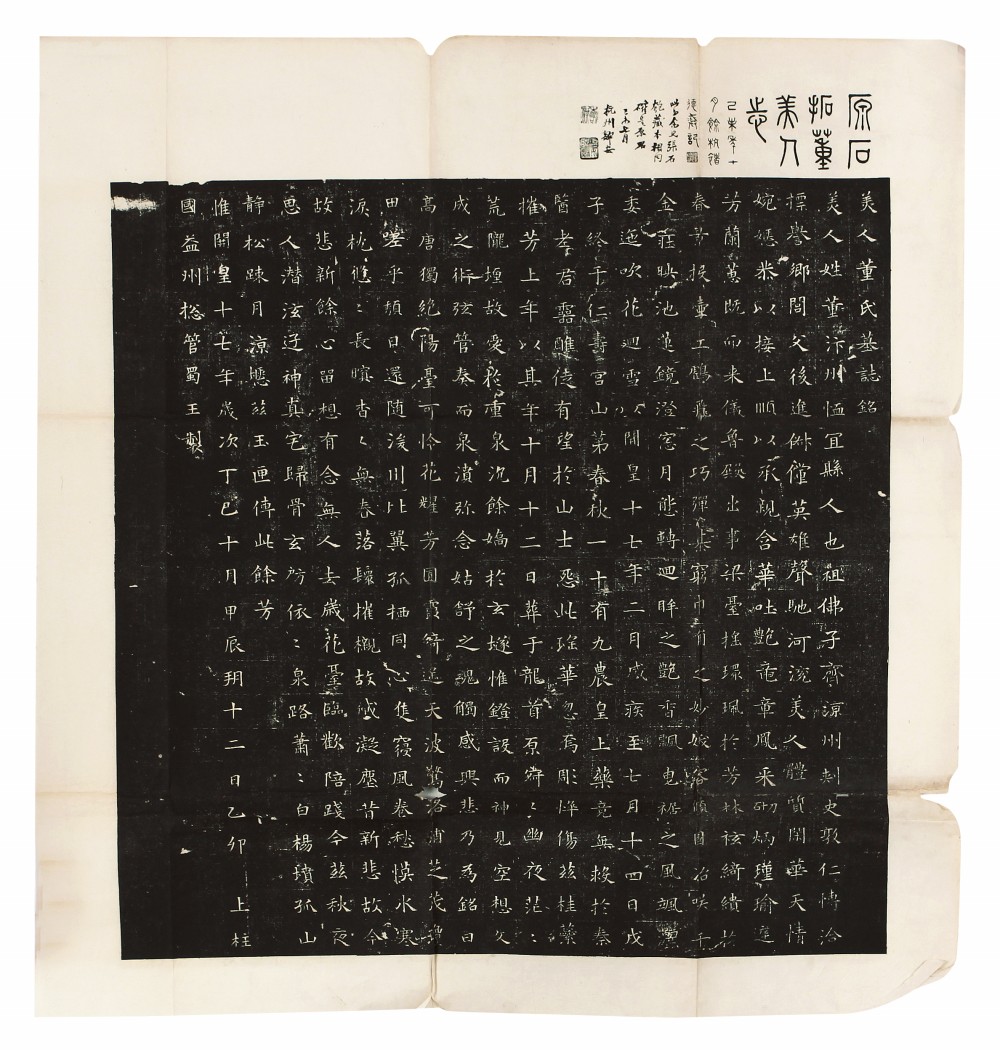 原石
拓董
美人
志
己未年十
月餘杭褚
德彝記
張石
銘藏本相同
確是原石
己未七月
杭州鄒安
美人董氏墓誌銘
美人姓董汴州恤宜縣人也祖佛子齊涼州刺史敦仁博洽
標譽鄉閭父後進俶儻英雄聲馳河渷美人體質閑華天情
婉嫕恭以接上順以承親含華吐艷竜章鳳采砌炳瑾瑜庭
芳蘭蕙既而来儀魯殿出事梁臺搖環珮於芳林袨綺繢於
春景投壺工鶴飛之巧彈棊窮巾角之妙妖容傾國冶咲千
金莊映池蓮鏡澄窓月態轉迴眸之艷香飄曳裾之風颯灑
委迤吹花迴雪以開皇十七年二月感疾至七月十四日戊
子終于仁壽宮山第春秋一十有九農皇上藥竟無救於秦
醫老君靈醮徒有望於山士怨此瑤華忽焉彫悴傷茲桂蘂
摧芳上年以其年十月十二日葬于龍首原寂〻幽夜茫〻
荒隴埋故愛於重泉沉餘嬌於玄墜惟鐙設而神見空想文
成之術弦管奏而泉濆弥念姑舒之魂觸感興悲乃為銘曰
高唐獨絕陽臺可怜花耀芳圃霞綺遙天波驚洛浦芝茂瓊
田嗟乎頹日還隨浚川比翼孤栖同心隻寢風卷愁慔水寒
淚枕悠〻長暝杳〻無春落鬟摧櫬故黛凝塵昔新悲故今
故悲新餘心留想有念無人去歲花臺臨歡陪踐今茲秋夜
思人潛泫迂神真宅歸骨玄房依〻泉路蕭〻白楊墳孤山
静松踈月涼瘞茲玉匣傳此餘芳
惟開皇十七年歲次丁巳十月甲辰朔十二日乙卯 上柱
國益州總管蜀王製